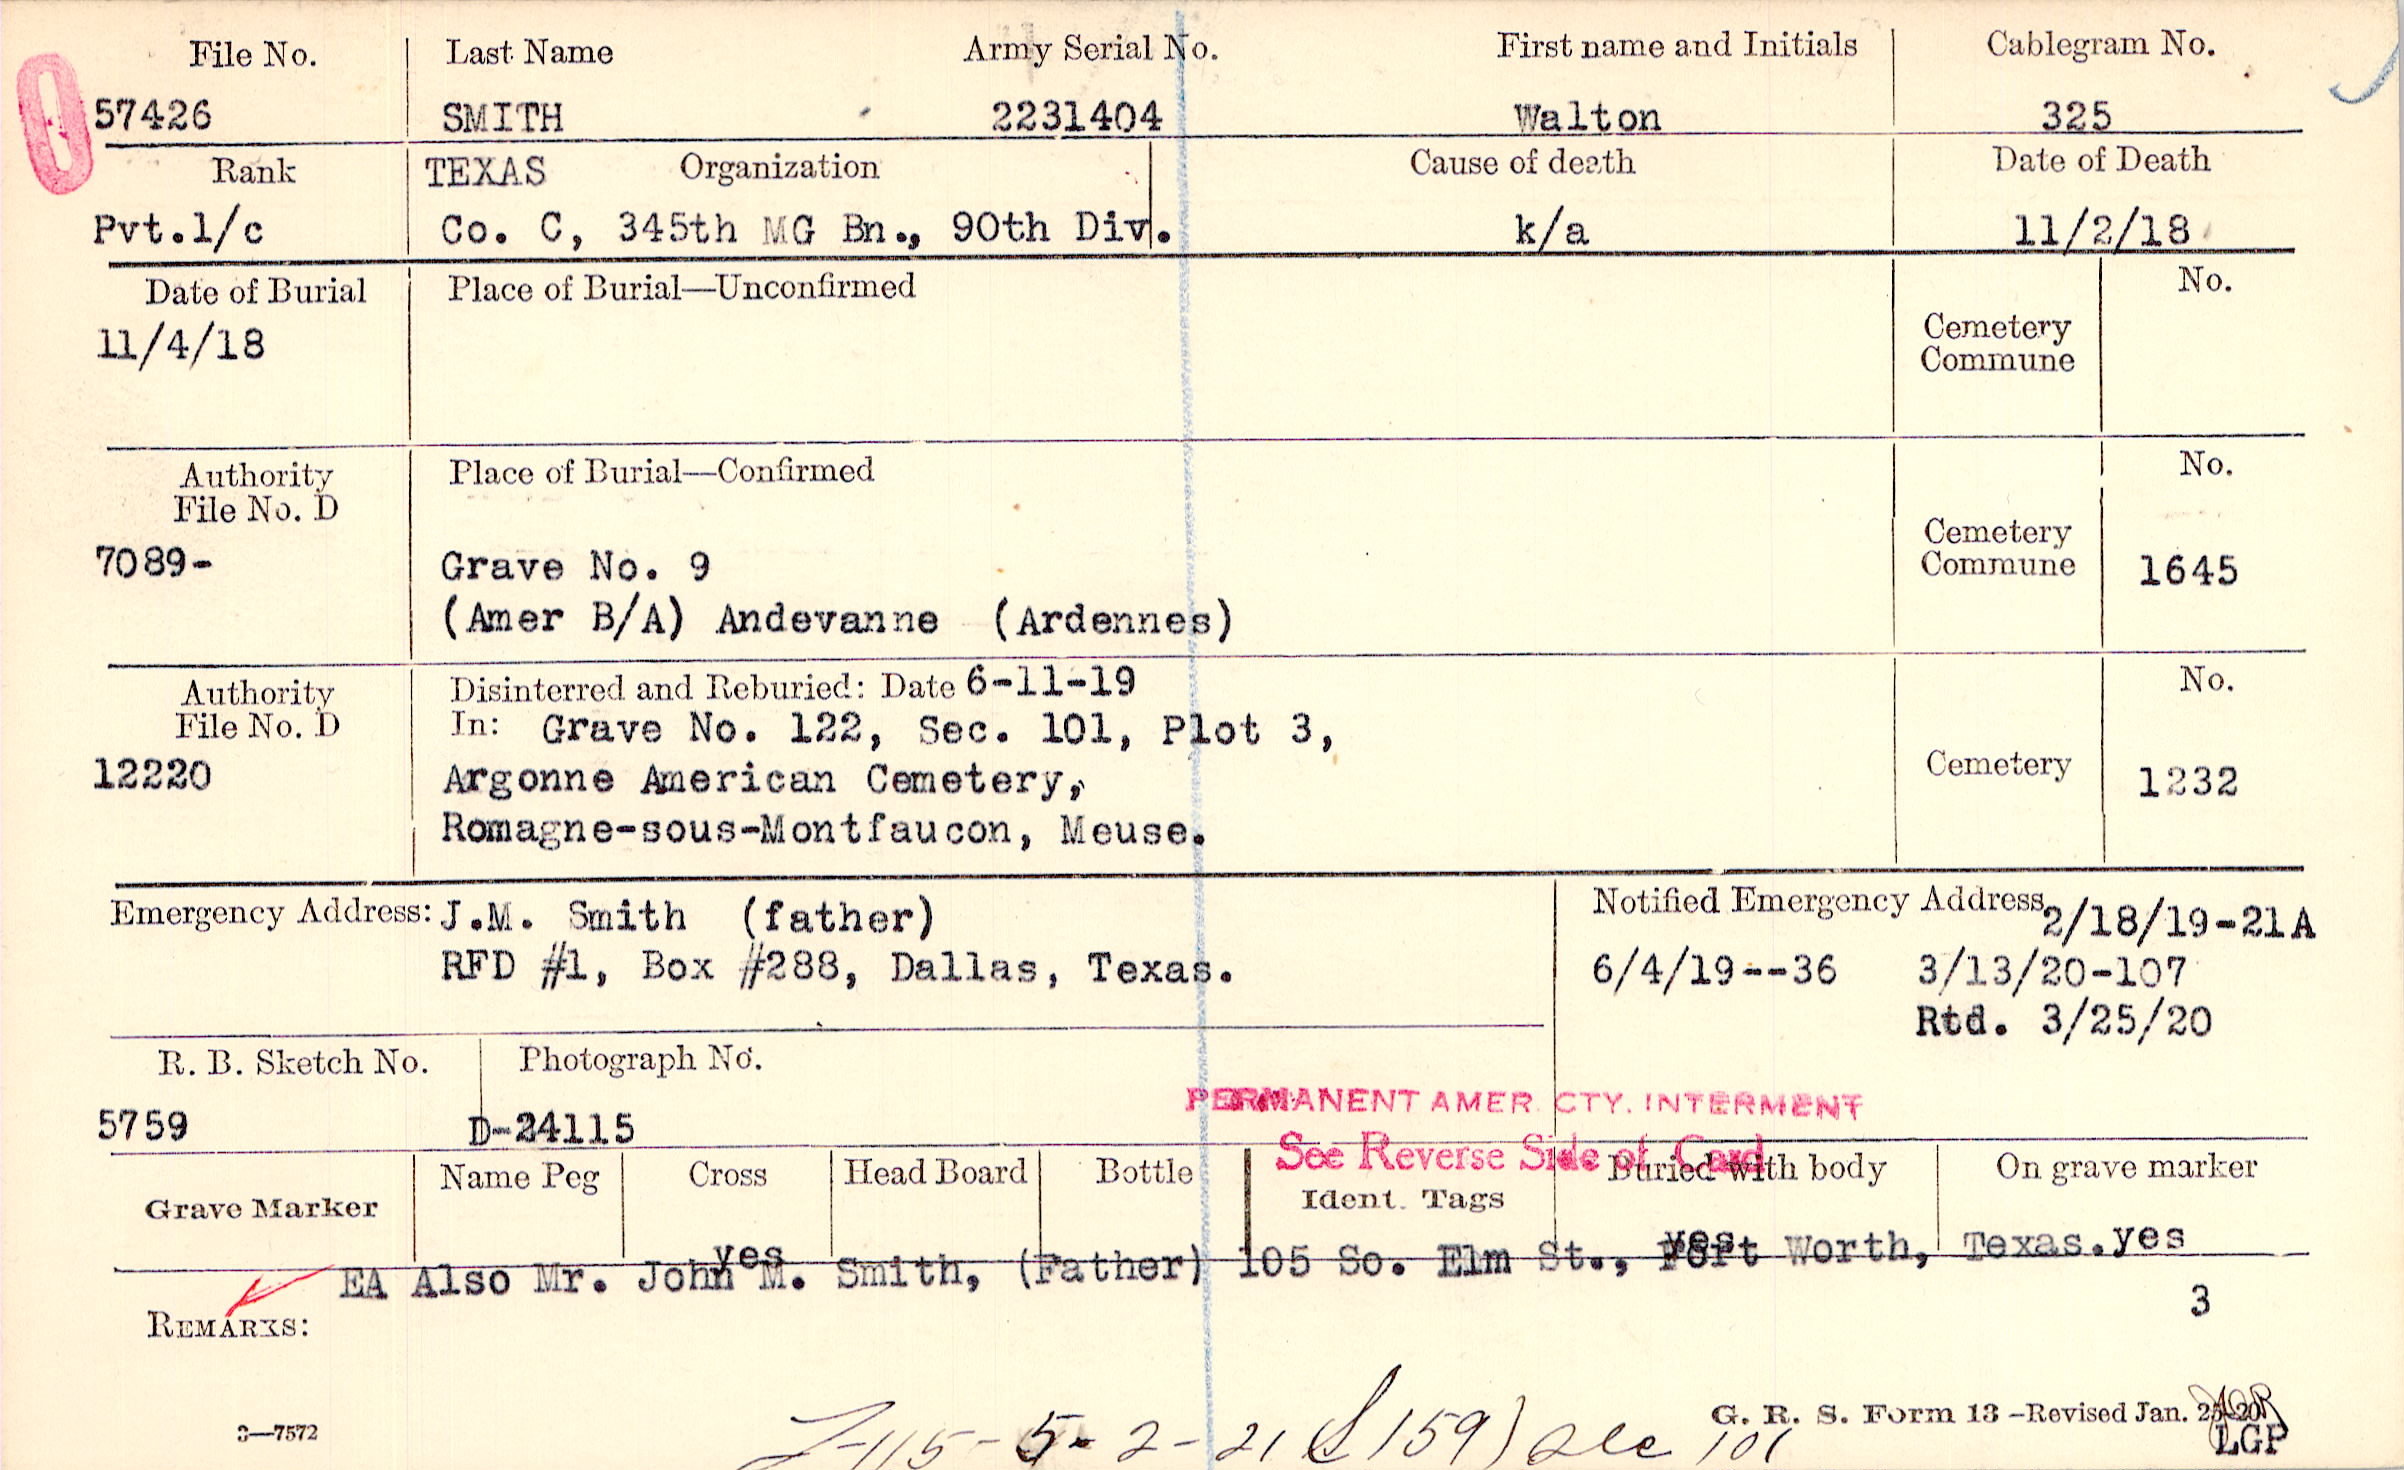 File No. Last Name Army Serial No. First name and Initials Cablegram No.
57426 SMITH 2231404 Walton 325
Rank TEXAS Organization Cause of death Date of Death
Pvt.1/c Co. C, 345th MG Bn., 90th Div. k/a 11/2/18
Date of Burial Place of Burial—Unconfirmed No.
11/4/18 Cemetery
Commune
Authority Place of Burial—Confirmed No.
File No. D
Cemetery
7089- Grave No. 9 Commune 1645
(Amer B/A) Andevanne (Ardennes)
Authority Disinterred and Reburied: Date 6-11-19 No.
File No. D In: Grave No. 122, Sec. 101, Plot 3,
12220 Argonne American Cemetery, Cemetery 1232
Romagne-sous-Montfaucon, Meuse.
Emergency Address: J.M. Smith (father) Notified Emergency Address 2/18/19-21A
RFD #1, Box #288, Dallas, Texas. 6/4/19--36 3/13/20-107
Rtd. 3/25/20
R. B. Sketch No. Photograph No.
PERMANENT AMER. CTY. INTERMENT
5759 D-24115
See Reverse Side of Card
Grave Marker Name Peg Cross Head Board Bottle Ident. Tags Buried with body On grave marker
yes yes yes
EA Also Mr. John M. Smith, (Father) 105 So. Elm St., Fort Worth, Texas.
3
REMARKS:
G. R. S. Form 13 –Revised Jan. 25-20
3—7572 5- 2-21 (159) Sec 101 LGP